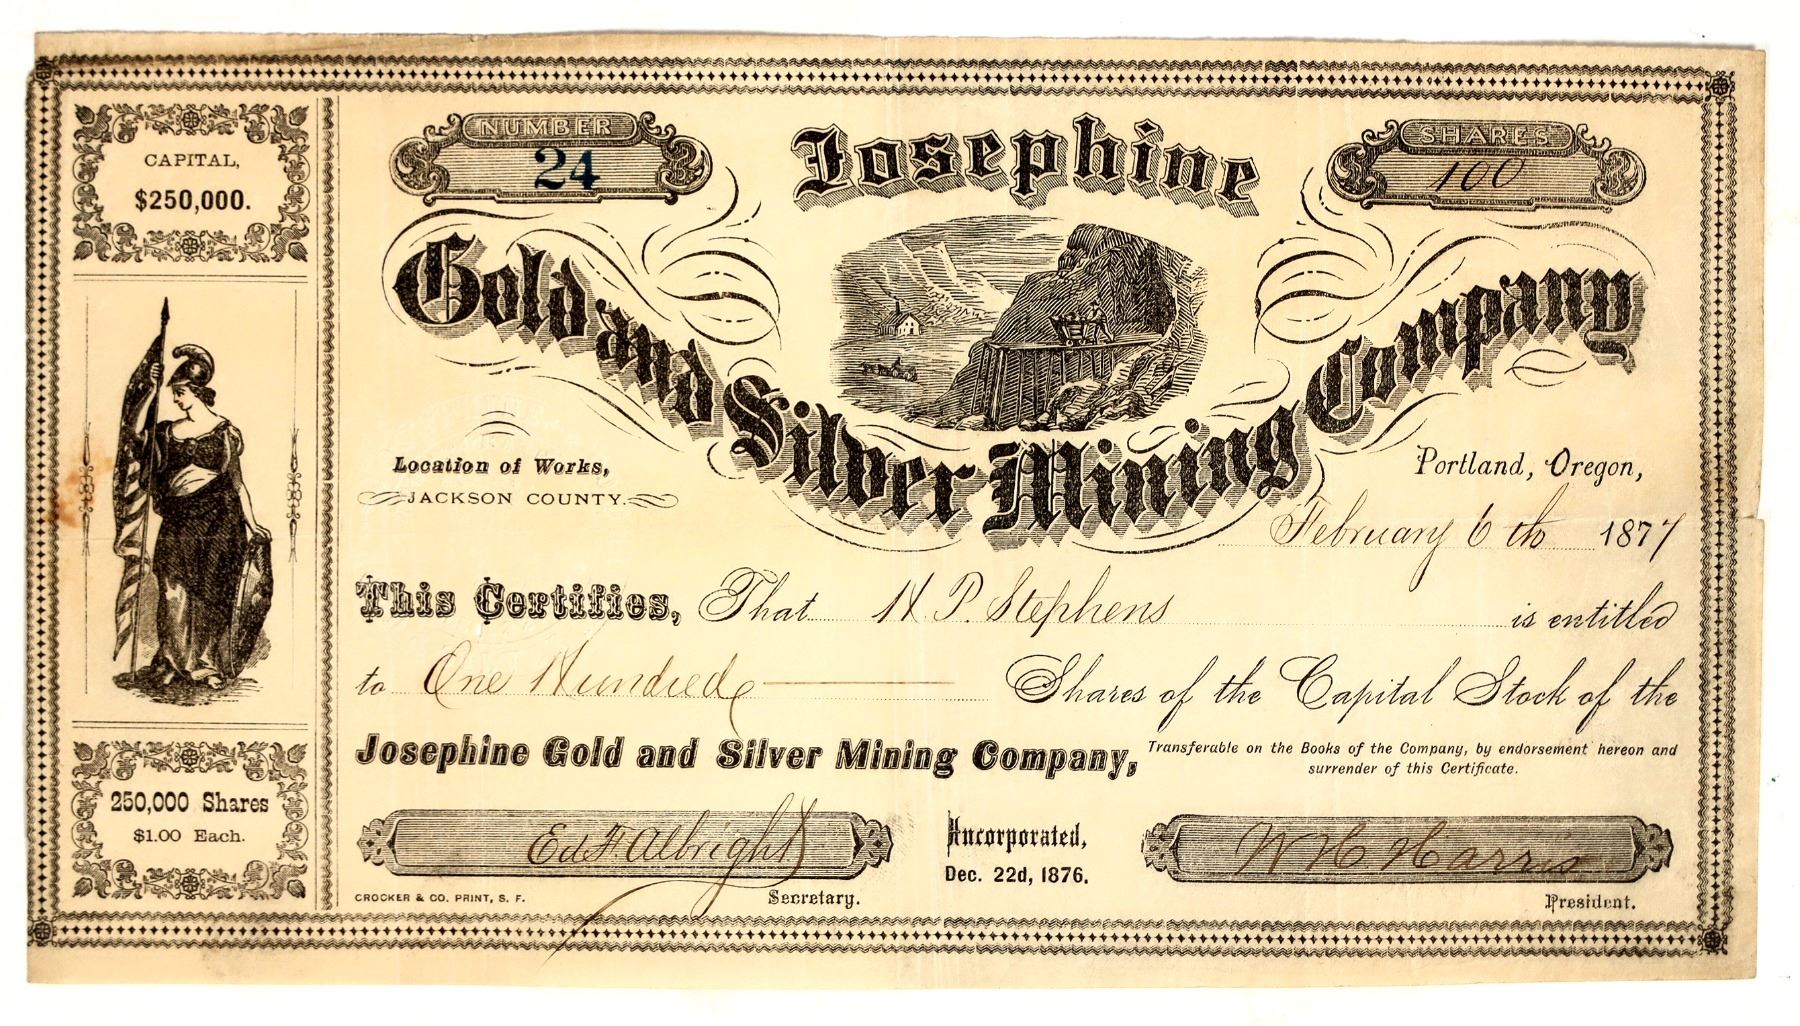 CAPITAL,
$250,000.
NUMBER
24
SHARES
100
Josephine
Gold and Silver Mining Company
Location of Works,
JACKSON COUNTY.
Portland, Oregon,
February 6th 1877
This Certifies, That H. P. Stephens is entitled
to One Hundred Shares of the Capital Stock of the
Josephine Gold and Silver Mining Company, Transferable on the Books of the Company, by endorsement hereon and
surrender of this Certificate.
250,000 Shares
$1.00 Each.
Ed. H. Albright
Secretary.
Incorporated,
Dec. 22d, 1876.
W H Harris
President.
CROCKER & CO. PRINT, S. F.